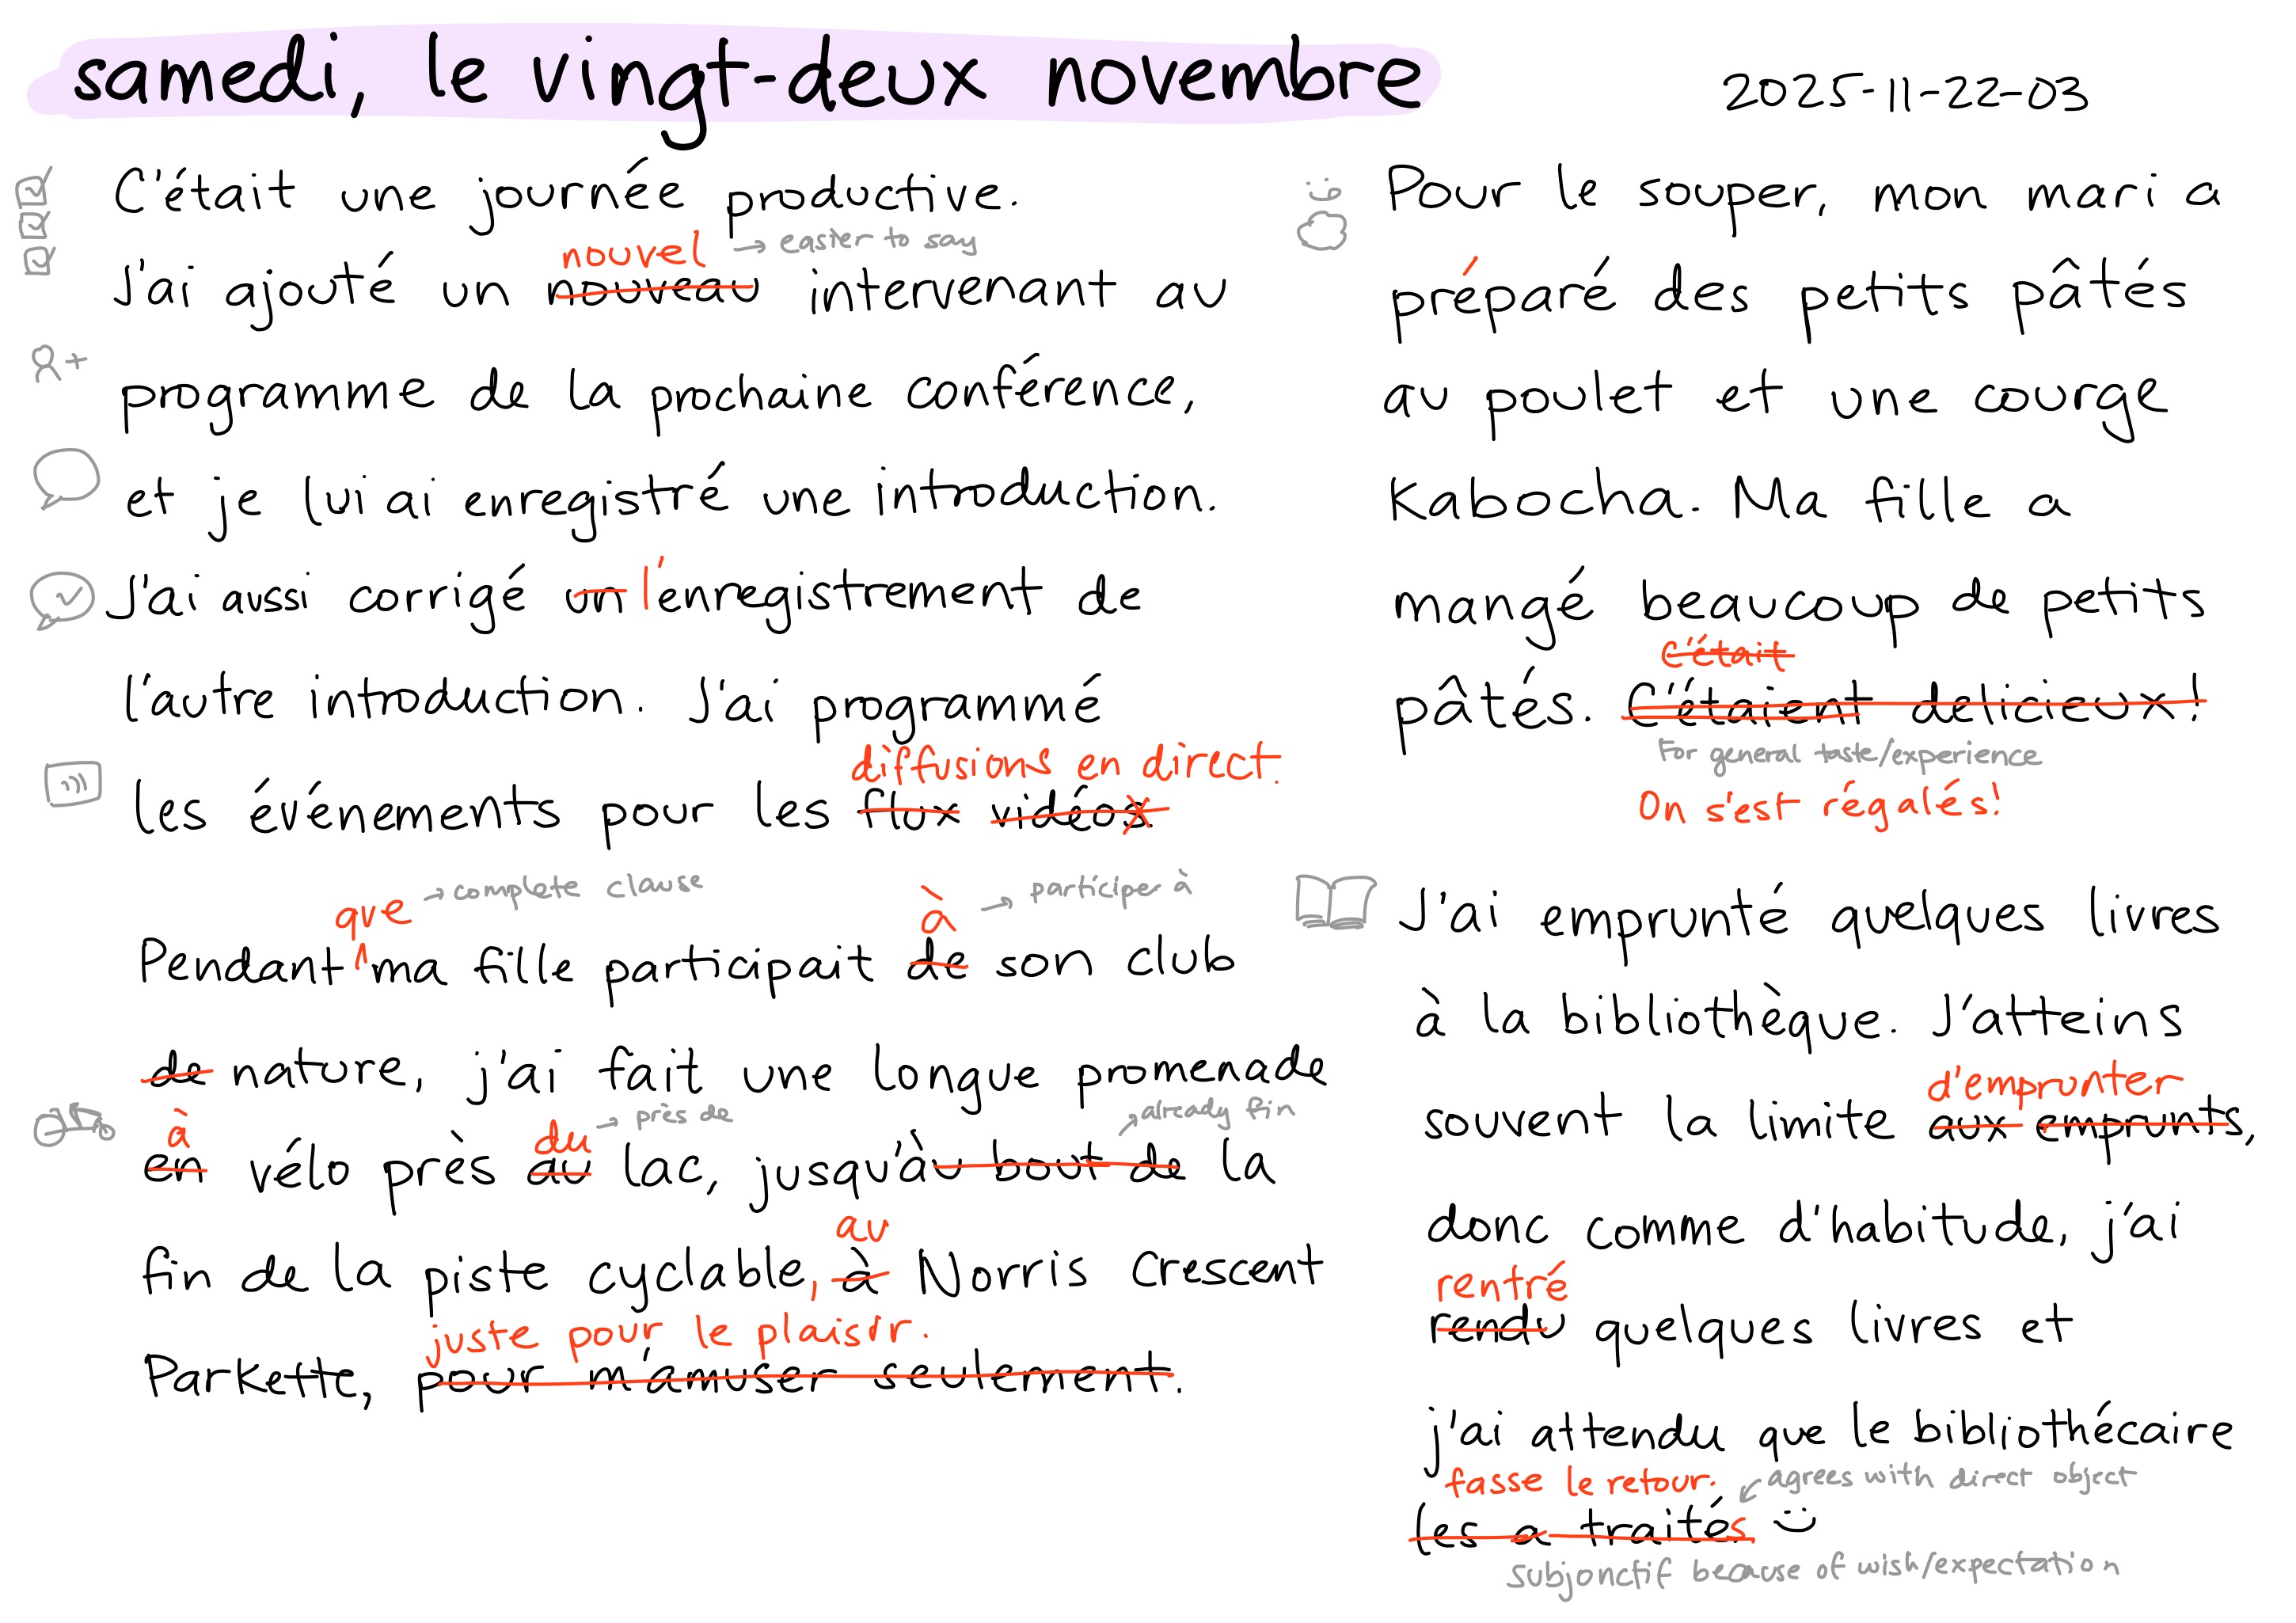 samedi, le vingt-deux novembre
2025-11-22-03
C'était une journée productive.
nouvel → easier to say
J'ai ajouté un nouveau intervenant au
programme de la prochaine conférence,
et je lui ai enregistré une introduction.
J'ai aussi corrigé un l'enregistrement de
l'autre introduction. J'ai programmé
diffusions en direct.
les événements pour les flux vidéos
que → complete clause
à → participer à
Pendant ma fille participait de son club
de nature, j'ai fait une longue promenade
à du → près de → already fin
en vélo près au lac, jusqu'àu bout de la
au
fin de la piste cyclable, à Norris Crescent
juste pour le plaisir.
Parkette, pour m'amuser seulement.
Pour le souper, mon mari a
préparé des petits pâtés
au poulet et une courge
Kabocha. Ma fille a
mangé beaucoup de petits
c'était
pâtés. C'étaient delicieux!
For general taste/experience
On s'est régalés!
J'ai emprunté quelques livres
à la bibliothèque. J'atteins
d'emprunter
souvent la limite aux emprunts,
donc comme d'habitude, j'ai
rentré
rendu quelques livres et
j'ai attendu que le bibliothécaire
fasse le retour. ↙ agrees with direct object
les a traités :)
subjonctif because of wish/expectation